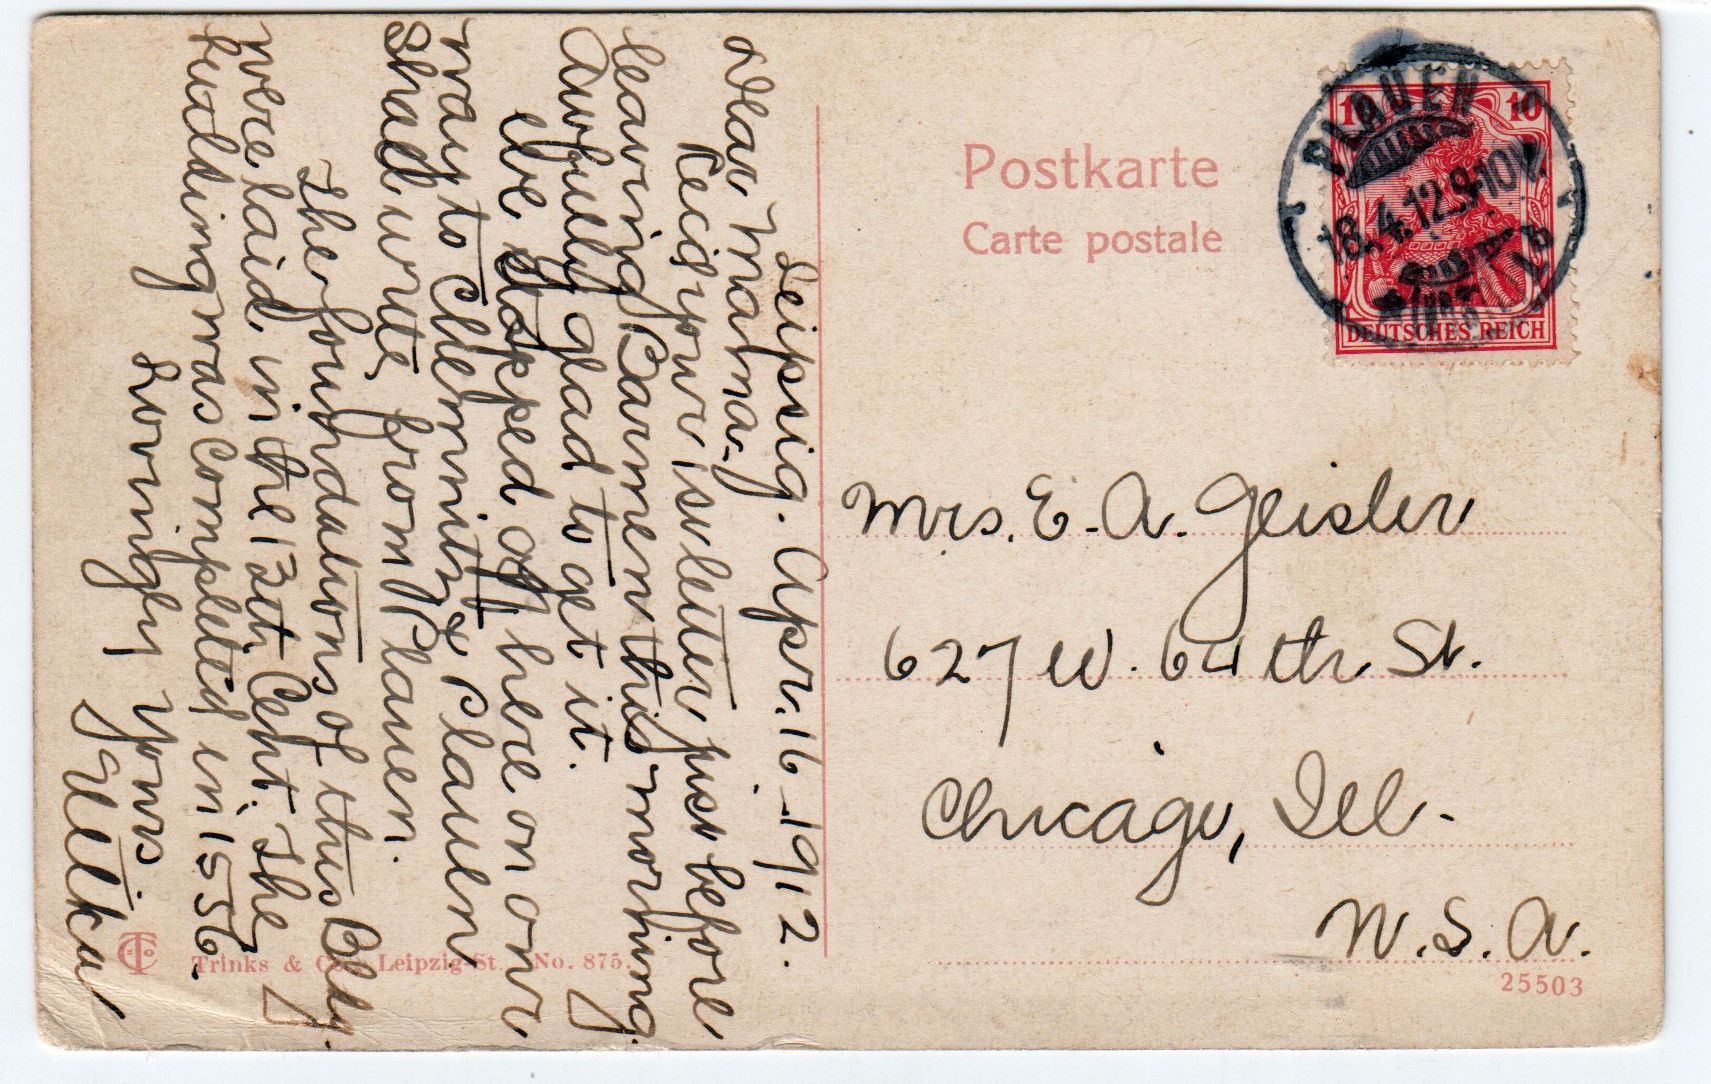 Leipsig. Apr. 16 - 1912.
Dear Mama -
Recd your 1st letter, just before
leaving Barmen this morning
Awfully glad to get it.
We stopped off here on our
way to Chemnitz & Plauen
Shall write from Plauen.
The foundations of this Bldg.
were laid in the 13th Cent. The
building was completed in 1556.
Lovingly Yours.
Postkarte
Carte postale
PLAUEN
18.4.12.9-10V.
10 10
DEUTSCHES REICH
Mrs. E. A. Geisler
627 W. 64th St.
Chicago, Ill.
U. S. A.
Trinks & Co., Leipzig-St. No. 875.
25503